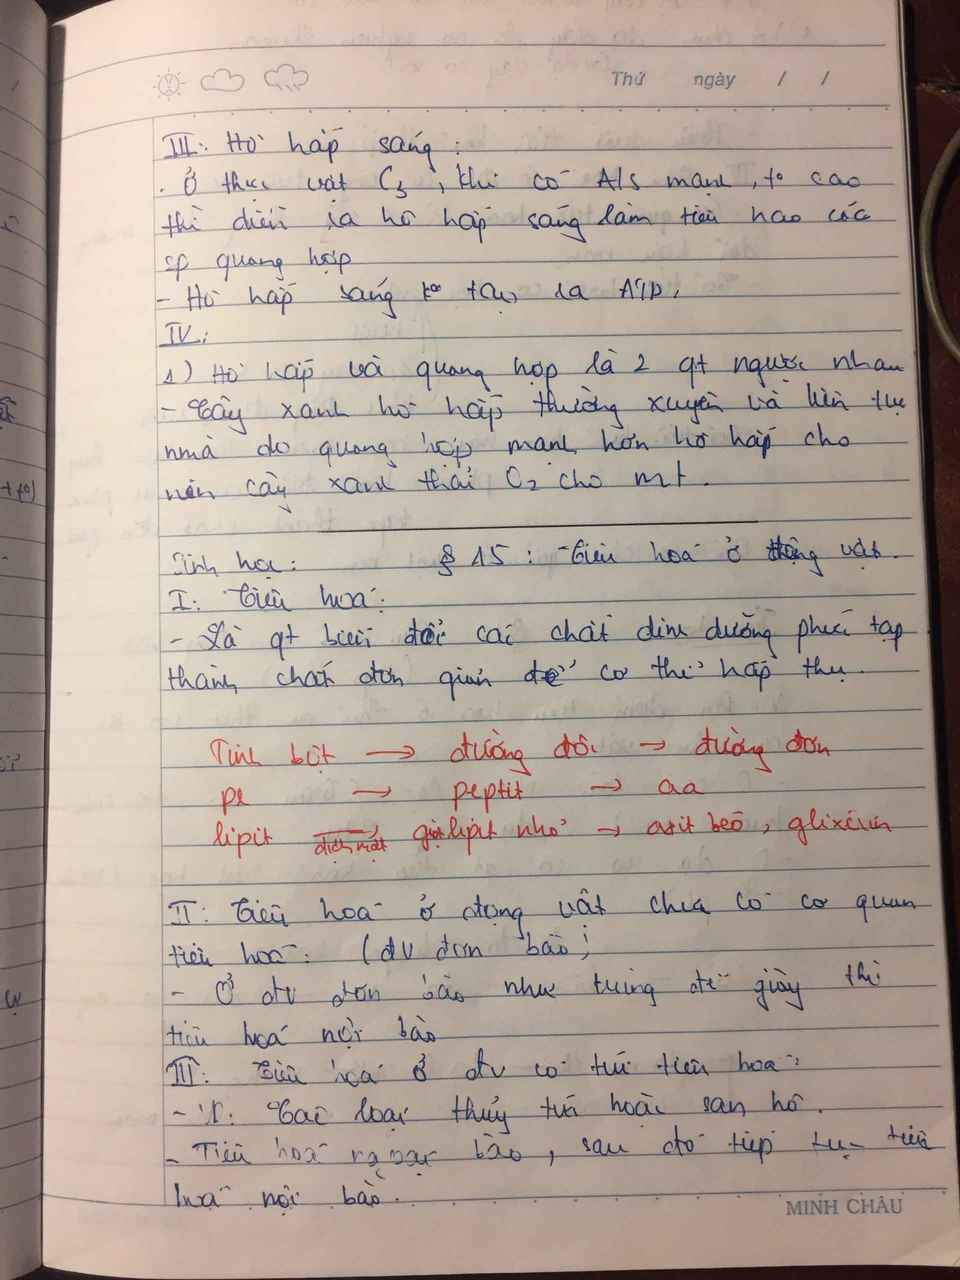 Thứ ngày / /
III: Hô hấp sáng :
. Ở thực vật C3, khi có A/s mạnh, to cao
thì diễn ra hô hấp sáng làm tiêu hao các
sp quang hợp
- Hô hấp sáng ko tạo ra ATP.
IV:
1) Hô hấp và quang hợp là 2 qt ngược nhau
- Cây xanh hô hấp thường xuyên và liên tục
nhà do quang hợp mạnh hơn hô hấp cho
nên cây xanh thải O2 cho mt.
Sinh học: § 15 : Tiêu hoá ở động vật.
I: Tiêu hoá:
- Là qt biến đổi các chất dinh dưỡng phức tạp
thành chất đơn giản để cơ thể hấp thụ.
Tinh bột → đường đôi → đường đơn
pr → peptit → aa
lipit dịch mật → giọt lipit nhỏ → axit béo, glixêrin
II: Tiêu hoá ở động vật chưa có cơ quan
tiêu hoá: (đv đơn bào)
- Ở đv đơn bào như trùng đế giày thì
tiêu hoá nội bào
III: Tiêu hoá ở đv có túi tiêu hoá:
- Các loại thuỷ tức hoặc san hô.
- Tiêu hoá ngoại bào, sau đó tiếp tục tiêu
hoá nội bào.
MINH CHÂU